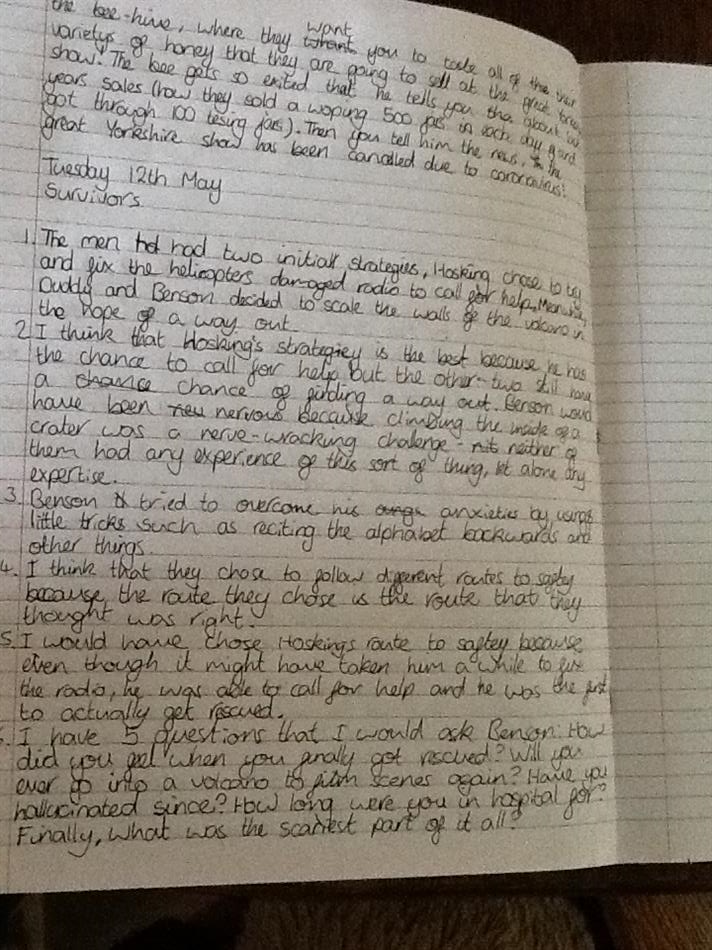 the bee-hive, where they want you to taste all of the
varietys of honey that they are going to sell at the great
show! The bee gets so exited that he tells you the about
years sales (how they sold a woping 500 jars in each day and
got through 100 tesing jars). Then you tell him the news, the
great Yorkeshire show has been cancelled due to coronavirus!
Tuesday 12th May
Survivors
1. The men had had two initiall strategies, Hosking chose to try
and fix the helicopters damaged radio to call for help, Meanwhile,
Duddy and Benson decided to scale the walls of the volcano in
the hope of a way out.
2. I think that Hosking's strategiey is the best because he has
the chance to call for help but the other two still have
a chance chance of finding a way out. Benson would
have been nervous because climbing the inside of a
crater was a nerve-wracking challenge - neither of
them had any experience of this sort of thing, let alone any
expertise.
3. Benson tried to overcome his anxieties by using
little tricks such as reciting the alphabet backwards and
other things.
4. I think that they chose to follow different routes to saftey
because the route they chose is the route that they
thought was right.
5. I would have chose Hoskings route to saftey because
even though it might have taken him a while to fix
the radio, he was able to call for help and he was the first
to actually get rescued.
6. I have 5 questions that I would ask Benson: How
did you feel when you finally got rescued? Will you
ever go into a volcano to film scenes again? Have you
hallucinated since? How long were you in hospital for?
Finally, what was the scariest part of it all?